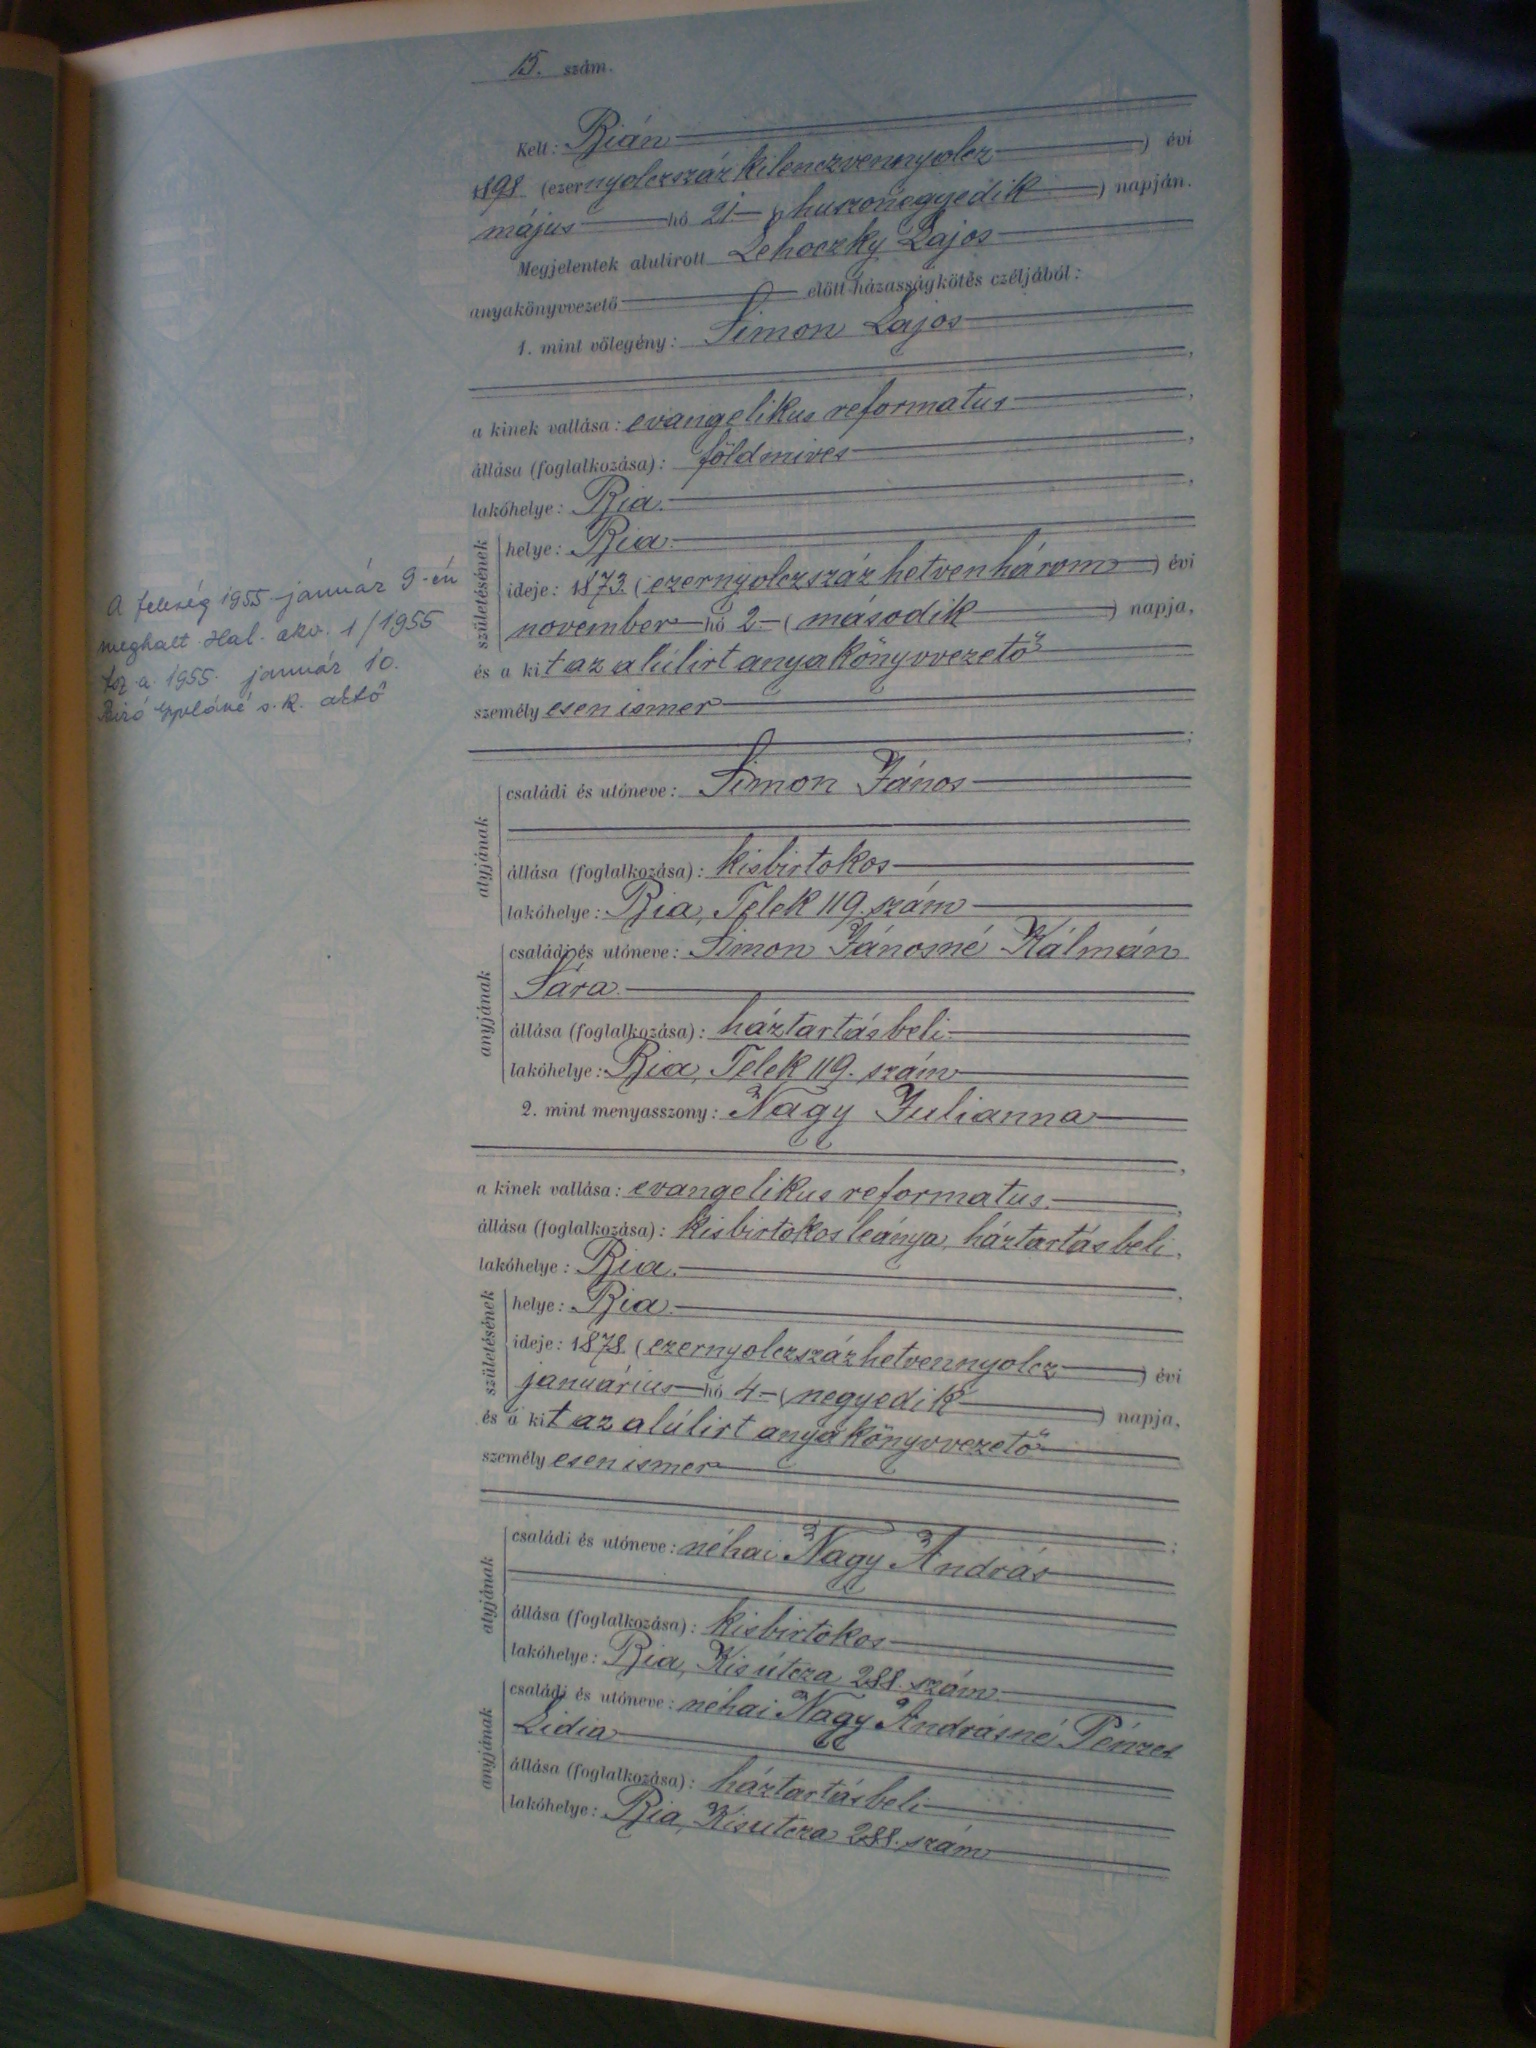 15. szám.
Kelt: Bián
1898 (ezernyolczszáz kilenczvennyolcz) évi
május hó 21. (huszonegyedik) napján.
Megjelentek alulirott Lehoczky Lajos
anyakönyvvezető előtt házasságkötés czéljából:
1. mint vőlegény: Simon Lajos
a kinek vallása: evangelikus reformatus
állása (foglalkozása): földmives
lakóhelye: Bia.
születésének
helye: Bia.
ideje: 1873. (ezernyolczszáz hetvenhárom) évi
november hó 2. (második) napja,
és a kit az alúlirt anyakönyvvezető
személyesen ismer
A feleség 1955 január 9-én
meghalt. Hal. akv. 1/1955
1955. január 10.
Biró s.k.
atyjának
családi és utóneve: Simon János
állása (foglalkozása): kisbirtokos
lakóhelye: Bia, Telek 119. szám
anyjának
családi és utóneve: Simon Jánosné Kálmán
Sára.
állása (foglalkozása): háztartásbeli.
lakóhelye: Bia, Telek 119. szám
2. mint menyasszony: Nagy Julianna
a kinek vallása: evangelikus reformatus.
állása (foglalkozása): kisbirtokos leánya, háztartásbeli,
lakóhelye: Bia.
születésének
helye: Bia.
ideje: 1878. (ezernyolczszázhetvennyolcz) évi
januárius hó 4. (negyedik) napja,
és a kit az alúlirt anyakönyvvezető
személyesen ismer
atyjának
családi és utóneve: néhai Nagy András
állása (foglalkozása): kisbirtokos
lakóhelye: Bia, Kisútcza 288. szám.
anyjának
családi és utóneve: néhai Nagy Andrásné Pénzes
Lidia
állása (foglalkozása): háztartásbeli
lakóhelye: Bia, Kisutcza 288. szám